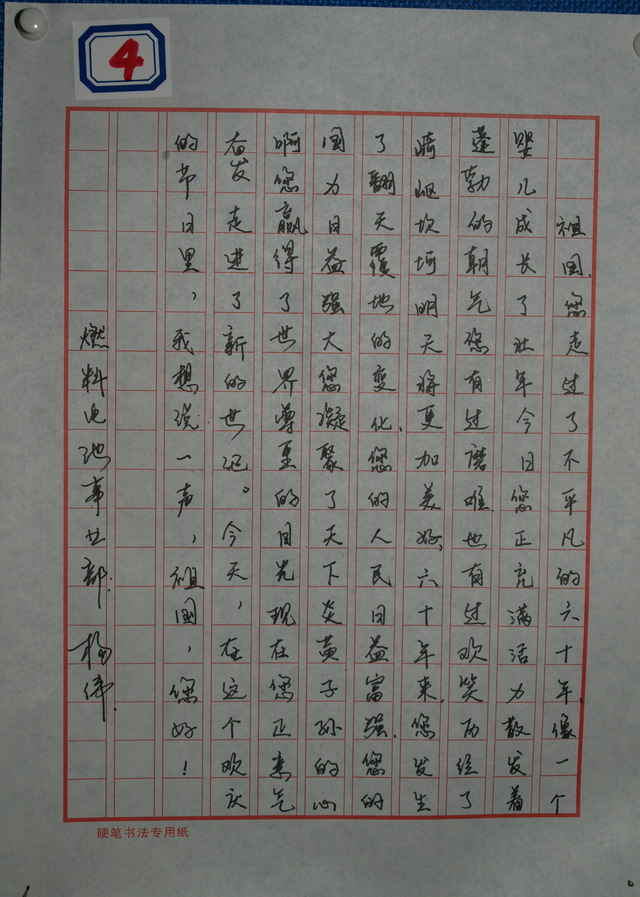 4
祖国,您走过了不平凡的六十年,像一个
婴儿成长了壮年今日您正充满活力散发着
蓬勃的朝气您有过磨难也有过欢笑历经了
崎岖坎坷明天将更加美好,六十年来,您发生
了翻天覆地的变化,您的人民日益富强,您的
国力日益强大您凝聚了天下炎黄子孙的心
啊您赢得了世界尊重的目光现在您正意气
奋发走进了新的世纪。今天,在这个欢庆
的节日里,我想说一声,祖国,您好!
燃料电池事业部:杨伟.
硬笔书法专用纸